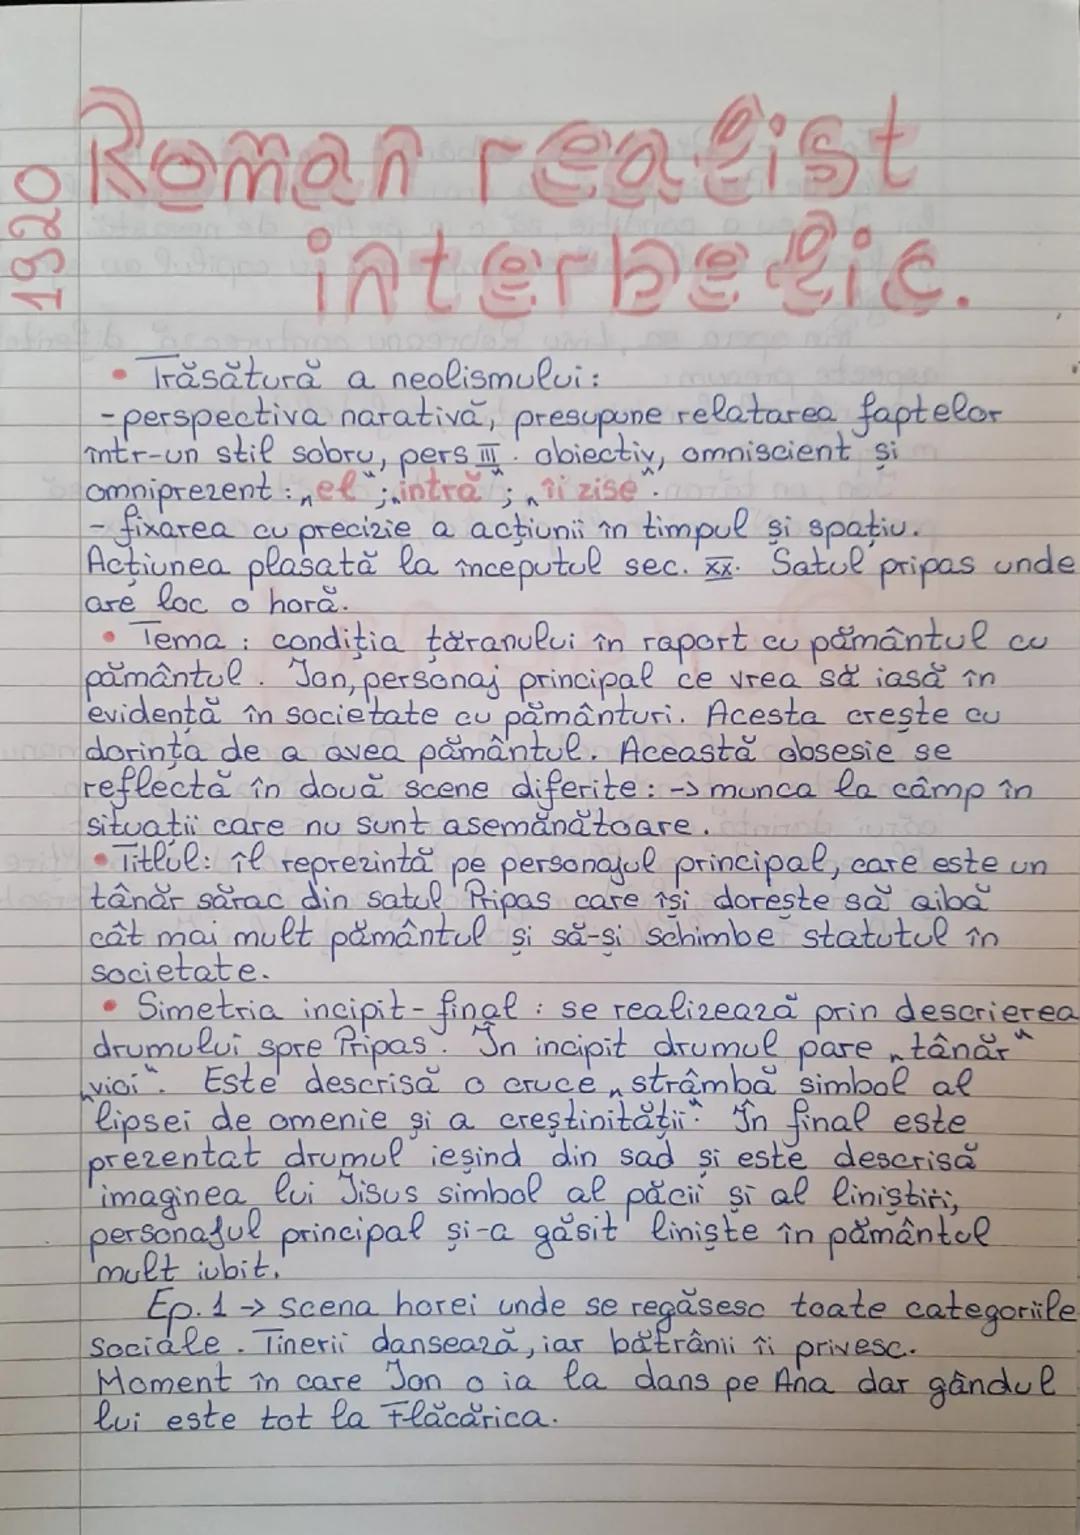 1920
Roman realist
interbelic.
• Trăsătură a neolismului:
- perspectiva narativă, presupune relatarea faptelor
într-un stil sobru, pers III. obiectiv, omniscient și
omniprezent: „el"; „intră"; „îi zise".
- fixarea cu precizie a acțiunii în timpul și spațiu.
Acțiunea plasată la începutul sec. XX. Satul pripas unde
are loc o horă.
• Tema: condiția țăranului în raport cu pământul cu
pământul. Ion, personaj principal ce vrea să iasă în
evidență în societate cu pământuri. Acesta crește cu
dorința de a avea pământul. Această obsesie se
reflectă în două scene diferite: -> munca la câmp în
situații care nu sunt asemănătoare.
• Titlul: îl reprezintă pe personajul principal, care este un
tânăr sărac din satul Pripas care își dorește să aibă
cât mai mult pământul și să-și schimbe statutul în
societate.
• Simetria incipit-final: se realizează prin descrierea
drumului spre Pripas. În incipit drumul pare „tânăr"
„vioi". Este descrisă o cruce „strâmbă simbol al
lipsei de omenie și a creștinității". În final este
prezentat drumul ieșind din sad și este descrisă
imaginea lui Iisus simbol al păcii și al liniștiri,
personajul principal și-a găsit liniște în pământul
mult iubit.
Ep. 1 -> scena horei unde se regăsesc toate categoriile
sociale. Tinerii dansează, iar bătrânii îi privesc.
Moment în care Ion o ia la dans pe Ana dar gândul
lui este tot la Flăcărica.